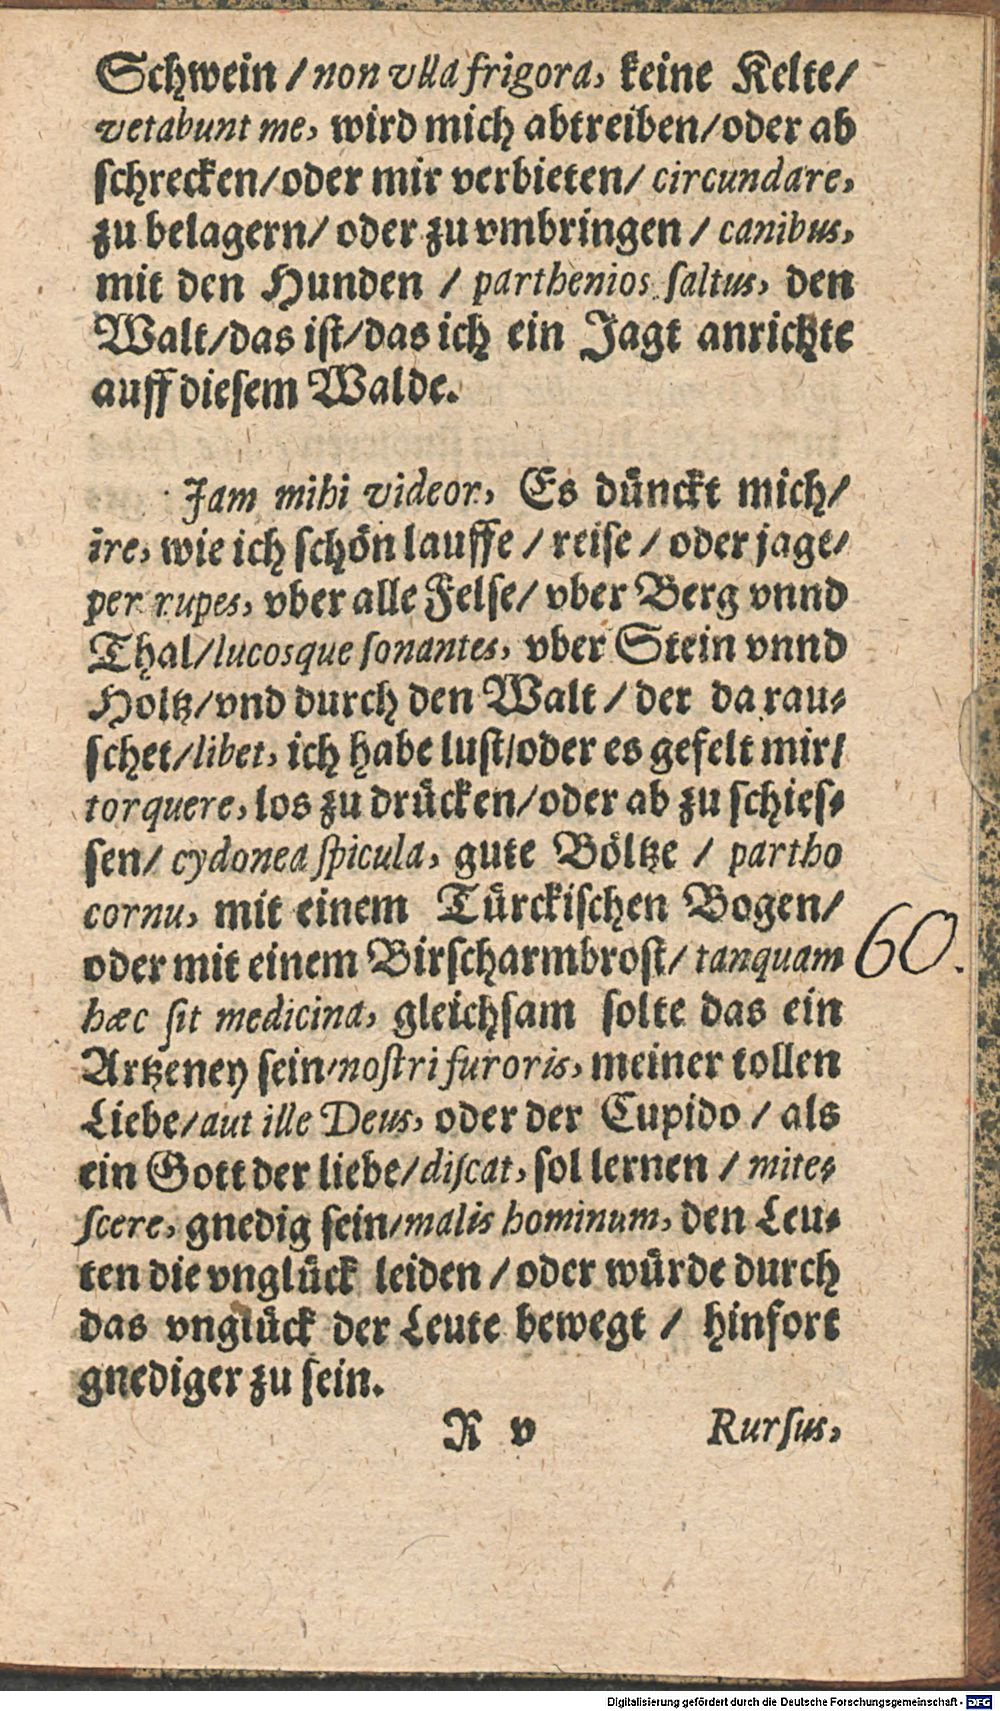 Schwein / non vlla frigora, keine Kelte /
vetabunt me, wird mich abtreiben / oder ab
schrecken / oder mir verbieten / circundare,
zu belagern / oder zu vmbringen / canibus,
mit den Hunden / parthenios saltus, den
Walt / das ist / das ich ein Jagt anrichte
auff diesem Walde.
Jam mihi videor, Es dünckt mich /
ire, wie ich schön lauffe / reise / oder jage /
per rupes, vber alle Felse / vber Berg vnnd
Thal / lucosque sonantes, vber Stein vnnd
Holtz / vnd durch den Walt / der da rau-
schet / libet, ich habe lust / oder es gefelt mir /
torquere, los zu drücken / oder ab zu schies-
sen / cydonea spicula, gute Böltze / partho
cornu, mit einem Türckischen Bogen /
oder mit einem Birscharmbrost / tanquam 60.
hæc sit medicina, gleichsam solte das ein
Artzeney sein / nostri furoris, meiner tollen
Liebe / aut ille Deus, oder der Cupido / als
ein Gott der liebe / discat, sol lernen / mite-
scere, gnedig sein / malis hominum, den Leu-
ten die vnglück leiden / oder würde durch
das vnglück der Leute bewegt / hinfort
gnediger zu sein.
R v Rursus,
Digitalisierung gefördert durch die Deutsche Forschungsgemeinschaft - DFG